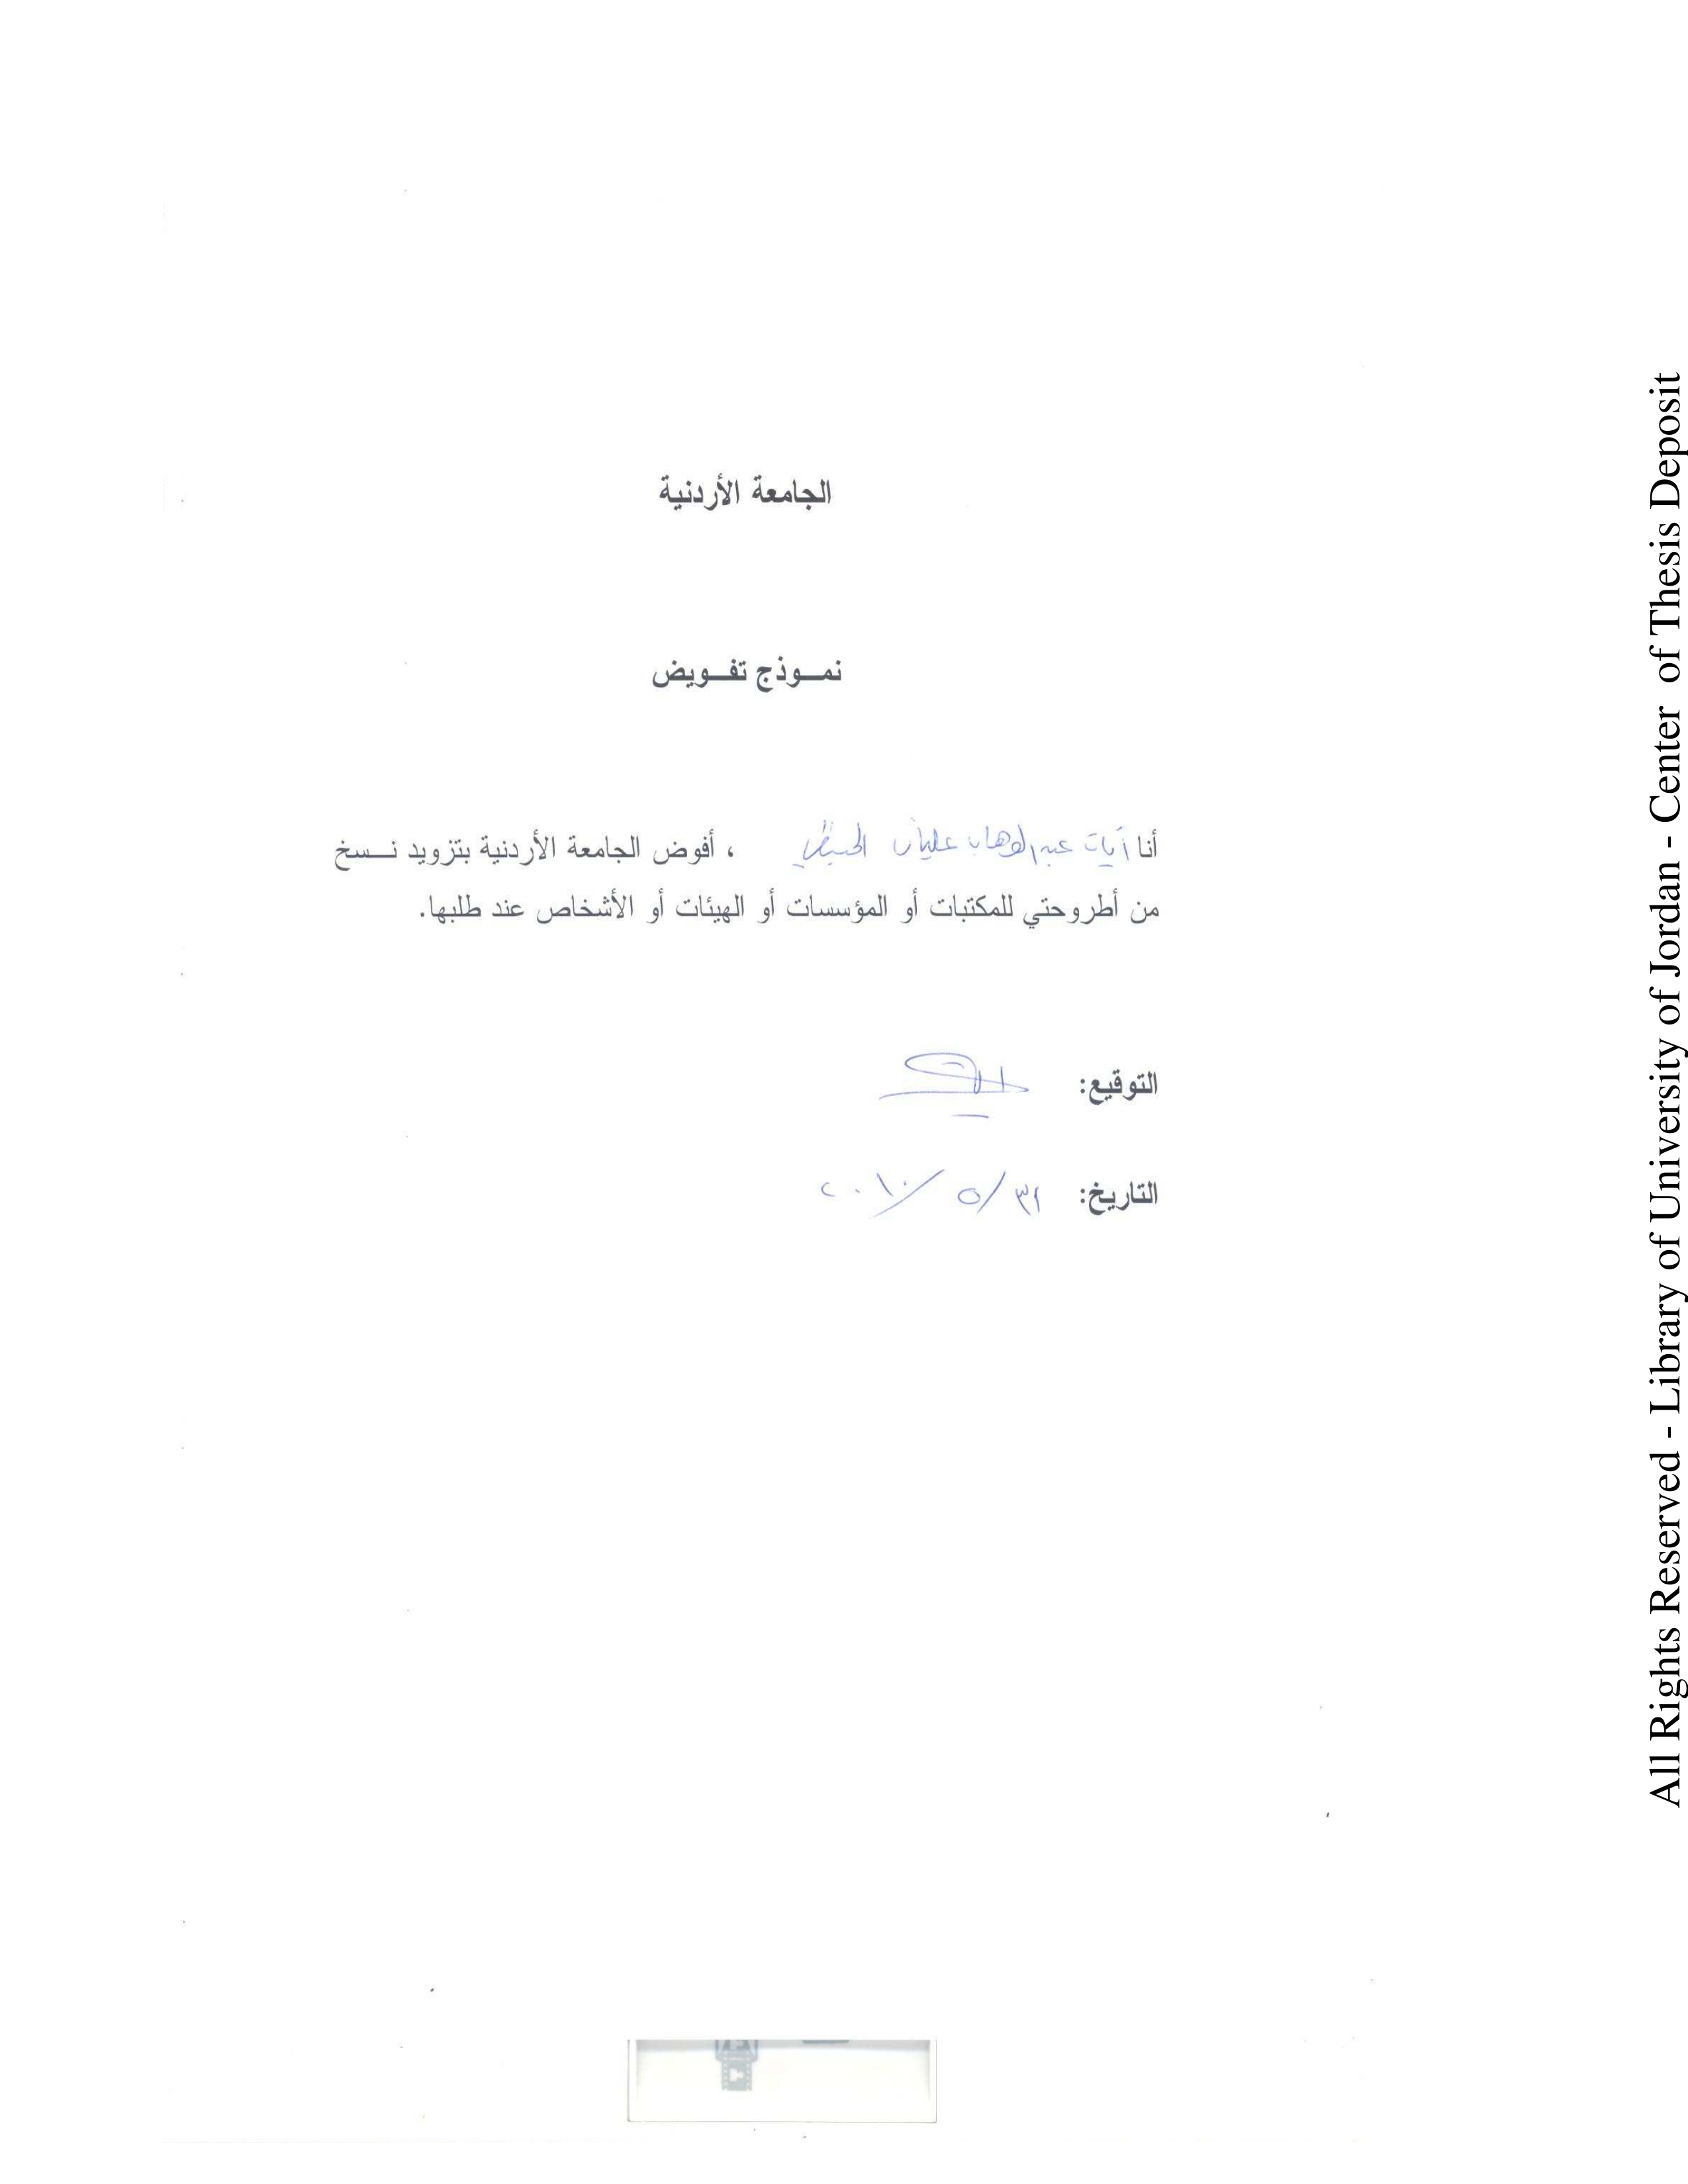 الجامعة الأردنية
نمـوذج تفـويض
أنا آيات عبد الوهاب عليان ، أفوض الجامعة الأردنية بتزويد نـسخ
من أطروحتي للمكتبات أو المؤسسات أو الهيئات أو الأشخاص عند طلبها.
التوقيع:
التاريخ: ٣١/ ٥ /٢٠١٠
All Rights Reserved - Library of University of Jordan - Center of Thesis Deposit